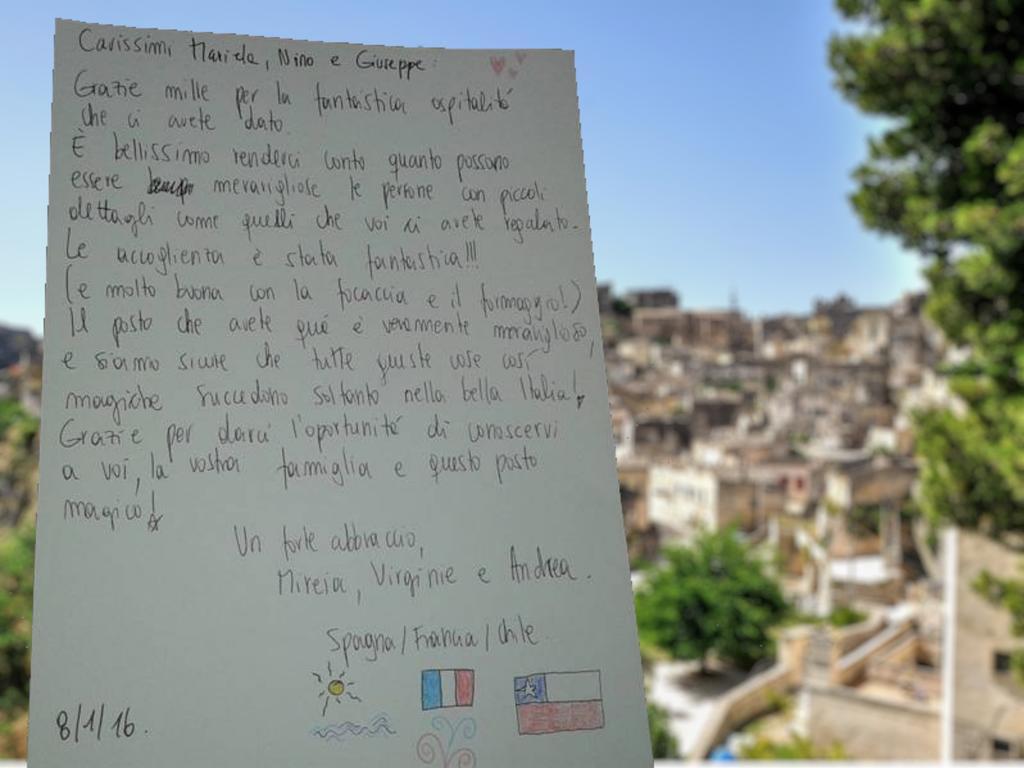 Carissimi Mariela, Nino e Giuseppe:
Grazie mille per la fantastica ospitalité
che ci avete dato.
È bellissimo renderci conto quanto possono
essere meravigliose le persone con piccoli
dettagli come quelli che voi ci avete regalato.
Le accoglienza è stata fantastica!!!
(e molto buona con la focaccia e il formaggio!)
Il posto che avete qué è veramente meraviglioso,
e siamo sicure che tutte queste cose cosí
magiche succedono soltanto nella bella Italia!
Grazie per darci l'oportunité di conoscervi
a voi, la vostra famiglia e questo posto
magico!
Un forte abbraccio,
Mireia, Virginie e Andrea.
Spagna/Francia/Chile
8/1/16.